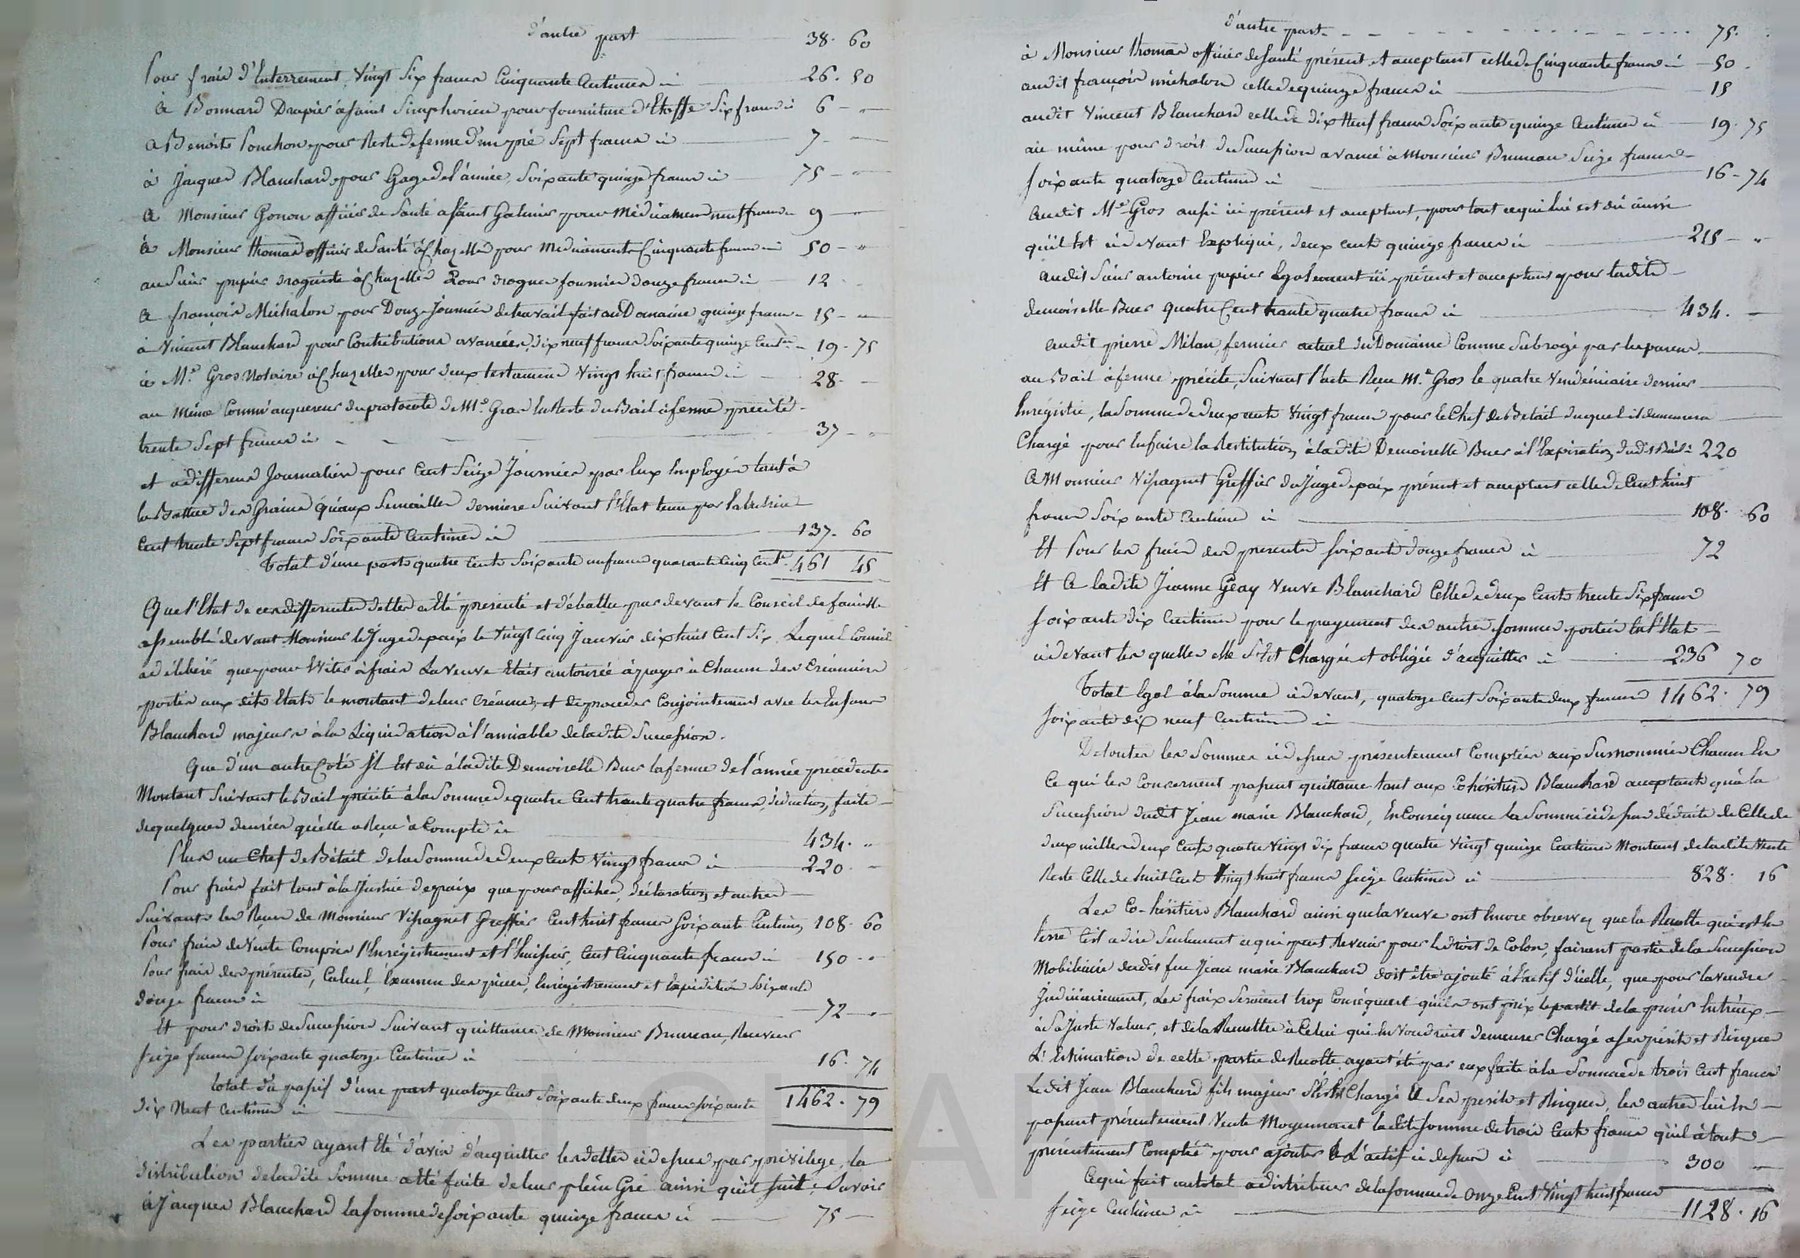 d'autre part 38. 60
Pour frais d'Enterrement, Vingt Six francs Cinquante Centimes ci 26. 50
à Bonnard Drapier à saint Simphorien pour fourniture d'Etoffe Six francs ci 6
à Benoite Ponchon pour Reste de ferme d'un pré Sept francs ci 7
à Jacques Blanchard pour Gage de l'année, Soixante quinze francs ci 75
à Monsieur Gonon officier de Santé à Saint Galmier pour Médicamens neuf francs 9
à Monsieur thomas officier de Santé à Chazelles pour Médicaments Cinquante francs ci 50
au Sieur pupier droguiste à Chazelles Pour drogues fournies douze francs ci 12
à françois Michalon pour Douze Journées de travail fait au Domaine quinze francs 15
à Vincent Blanchard pour Contributions avancées, dix neuf francs Soixante quinze Centes 19. 75
à Me Gros Notaire à Chazelles pour deux testamens Vingt huit francs ci 28.
au même Comme acquereur du protocole de Me Gras le Reste du Bail à ferme précité
trente Sept francs ci 37
et à differens Journaliers pour Cent Seize Journées par Eux Employées tant à
la Battue des Grains qu'aux Semailles dernieres Suivant l'Etat tenu par
Cent trente Sept francs Soixante Centimes ci 137. 60
Total d'une part quatre Cents Soixante un francs quarante Cinq Cent. 461 45
Que l'Etat de ces differentes dettes a été présenté et débattu par devant le Conseil de famille
assemblé devant Monsieur le Juge de paix le Vingt Cinq Janvier dix huit Cent Six, Lequel Conseil
a délibéré que pour Eviter à frais La veuve était autorisée à payer à Chacun des Créanciers
portés aux dits Etats le montant de leurs créances, et de proceder Conjointement avec les Enfans
Blanchard majeurs à la Liquidation à l'amiable de la dite Succession.
Que d'un autre Coté Il Est dû à la dite Demoiselle Buer la ferme de l'année précédente
Montant Suivant le Bail précité à la Somme de quatre Cent trente quatre francs, déduction faite
de quelques denrées qu'elle a Recu à Compte ci 434.
Plus un Chef de Bétail de la Somme de deux Cent Vingt francs ci 220
Pour frais fait tant à la Justice de paix que pour affiches, déclaration et autres
Suivant les Recus de Monsieur Vissaguet Greffier Cent huit francs Soixante Centimes 108. 60
Pour frais de Vente Compris l'Enregistrement et l'huissier, Cent Cinquante francs ci 150
Pour frais des présentes, Calcul, Examen des pieces, Enregistrement et Expédition Soixante
douze francs ci 72
Et pour droit de Succession Suivant quittance de Monsieur Bruneau, Receveur
Seize francs soixante quatorze Centimes ci 16. 74
total du passif d'une part quatorze Cent Soixante deux francs soixante
dix Neuf Centimes ci 1462. 79
Les parties ayant Eté d'avis d'acquitter les dettes ci dessus par privilege, la
distribution de la dite Somme a été faite de leur plein Gré ainsi qu'il Suit: Savoir
à Jacques Blanchard la Somme de Soixante quinze francs ci 75
d'autre part 75.
à Monsieur thomas officier de Santé présent et acceptant celle de Cinquante francs ci 50
audit françois michalon celle de quinze francs ci 15
audit Vincent Blanchard celle de dix Neuf francs Soixante quinze Centimes ci 19. 75
au même pour droit de Succession avancé à Monsieur Bruneau Seize francs
Soixante quatorze Centimes ci 16 - 74
Audit Me Gros aussi ici présent et acceptant, pour tout ce qui lui est dû ainsi
qu'il Est ci devant Expliqué, deux cent quinze francs ci 215
audit Sieur antoine pupier Egalement ici présent et acceptant pour ladite
demoiselle Buer quatre Cent trente quatre francs ci 434.
audit pierre Milan, fermier actuel du Domaine Comme Subrogé par
au Bail à ferme précité, Suivant l'acte Recu Me Gros le quatre Vendémiaire dernier
Enregistré, la Somme de deux cents Vingt francs pour le Chef de Bétail duquel il demeurera
Chargé pour En faire la Restitution à la dite Demoiselle Buer à l'Expiration dudit Bail ci 220
A Monsieur Vissaguet Greffier du Juge de paix présent et acceptant celle de Cent huit
francs Soixante Centimes ci 108. 60
Et Pour les frais des présentes soixante douze francs ci 72
Et à ladite Jeanne Geay Veuve Blanchard Celle de deux Cents trente Six francs
Soixante dix Centimes pour le payement des autres sommes portées En l'Etat
ci devant les quelles elle S'est Chargée et obligée d'acquitter ci 236 70
Total Egal à la Somme ci devant, quatorze Cent Soixante deux francs 1462. 79
Soixante dix neuf Centimes ci
De toutes les Sommes ci dessus présentement Comptées aux Surnommés Chacun En
Ce qui les Concernent passent quittance tant aux Cohéritiers Blanchard acceptants qu'à la
Succession dudit Jean marie Blanchard, En Conséquence la Somme ci dessus déduite de Celle de
deux milles deux Cents quatre Vingt dix francs quatre Vingt quinze Centimes Montant de ladite Vente
Reste Celle de huit Cent Vingt huit francs Seize Centimes ci 828. 16
Les Co-héritiers Blanchard ainsi que la veuve ont Encore observé que la Recolte qui est En
terre C'est à dire Seulement ce qui peut Revenir pour le droit de Colon, faisant partie de la Succession
Mobiliaire dudit feu Jean marie Blanchard doit être ajouté à l'actif d'icelle, que pour la vendre
Judiciairement, Les frais Seroient trop Conséquent qu'ils ont prix le partit de la priser Entr'eux
à Sa Juste Valeur, et de la Remettre à Celui qui En voudroit demeurer Chargé à Ses périls et Risques
L'Estimation de cette partie de Recolte ayant été par eux faite à la Somme de trois Cent francs
Ledit Jean Blanchard fils majeur S'est Chargé à Ses périls et Risques, les autres lui En
passant présentement Vente Moyennant ladite Somme de trois Cent francs qu'il à tout
présentement Comptée pour ajouter à L'actif ci dessus ci 300
Ce qui fait au total à distribuer de la Somme de Onze Cent Vingt huit francs
Seize Centimes ci 1128. 16